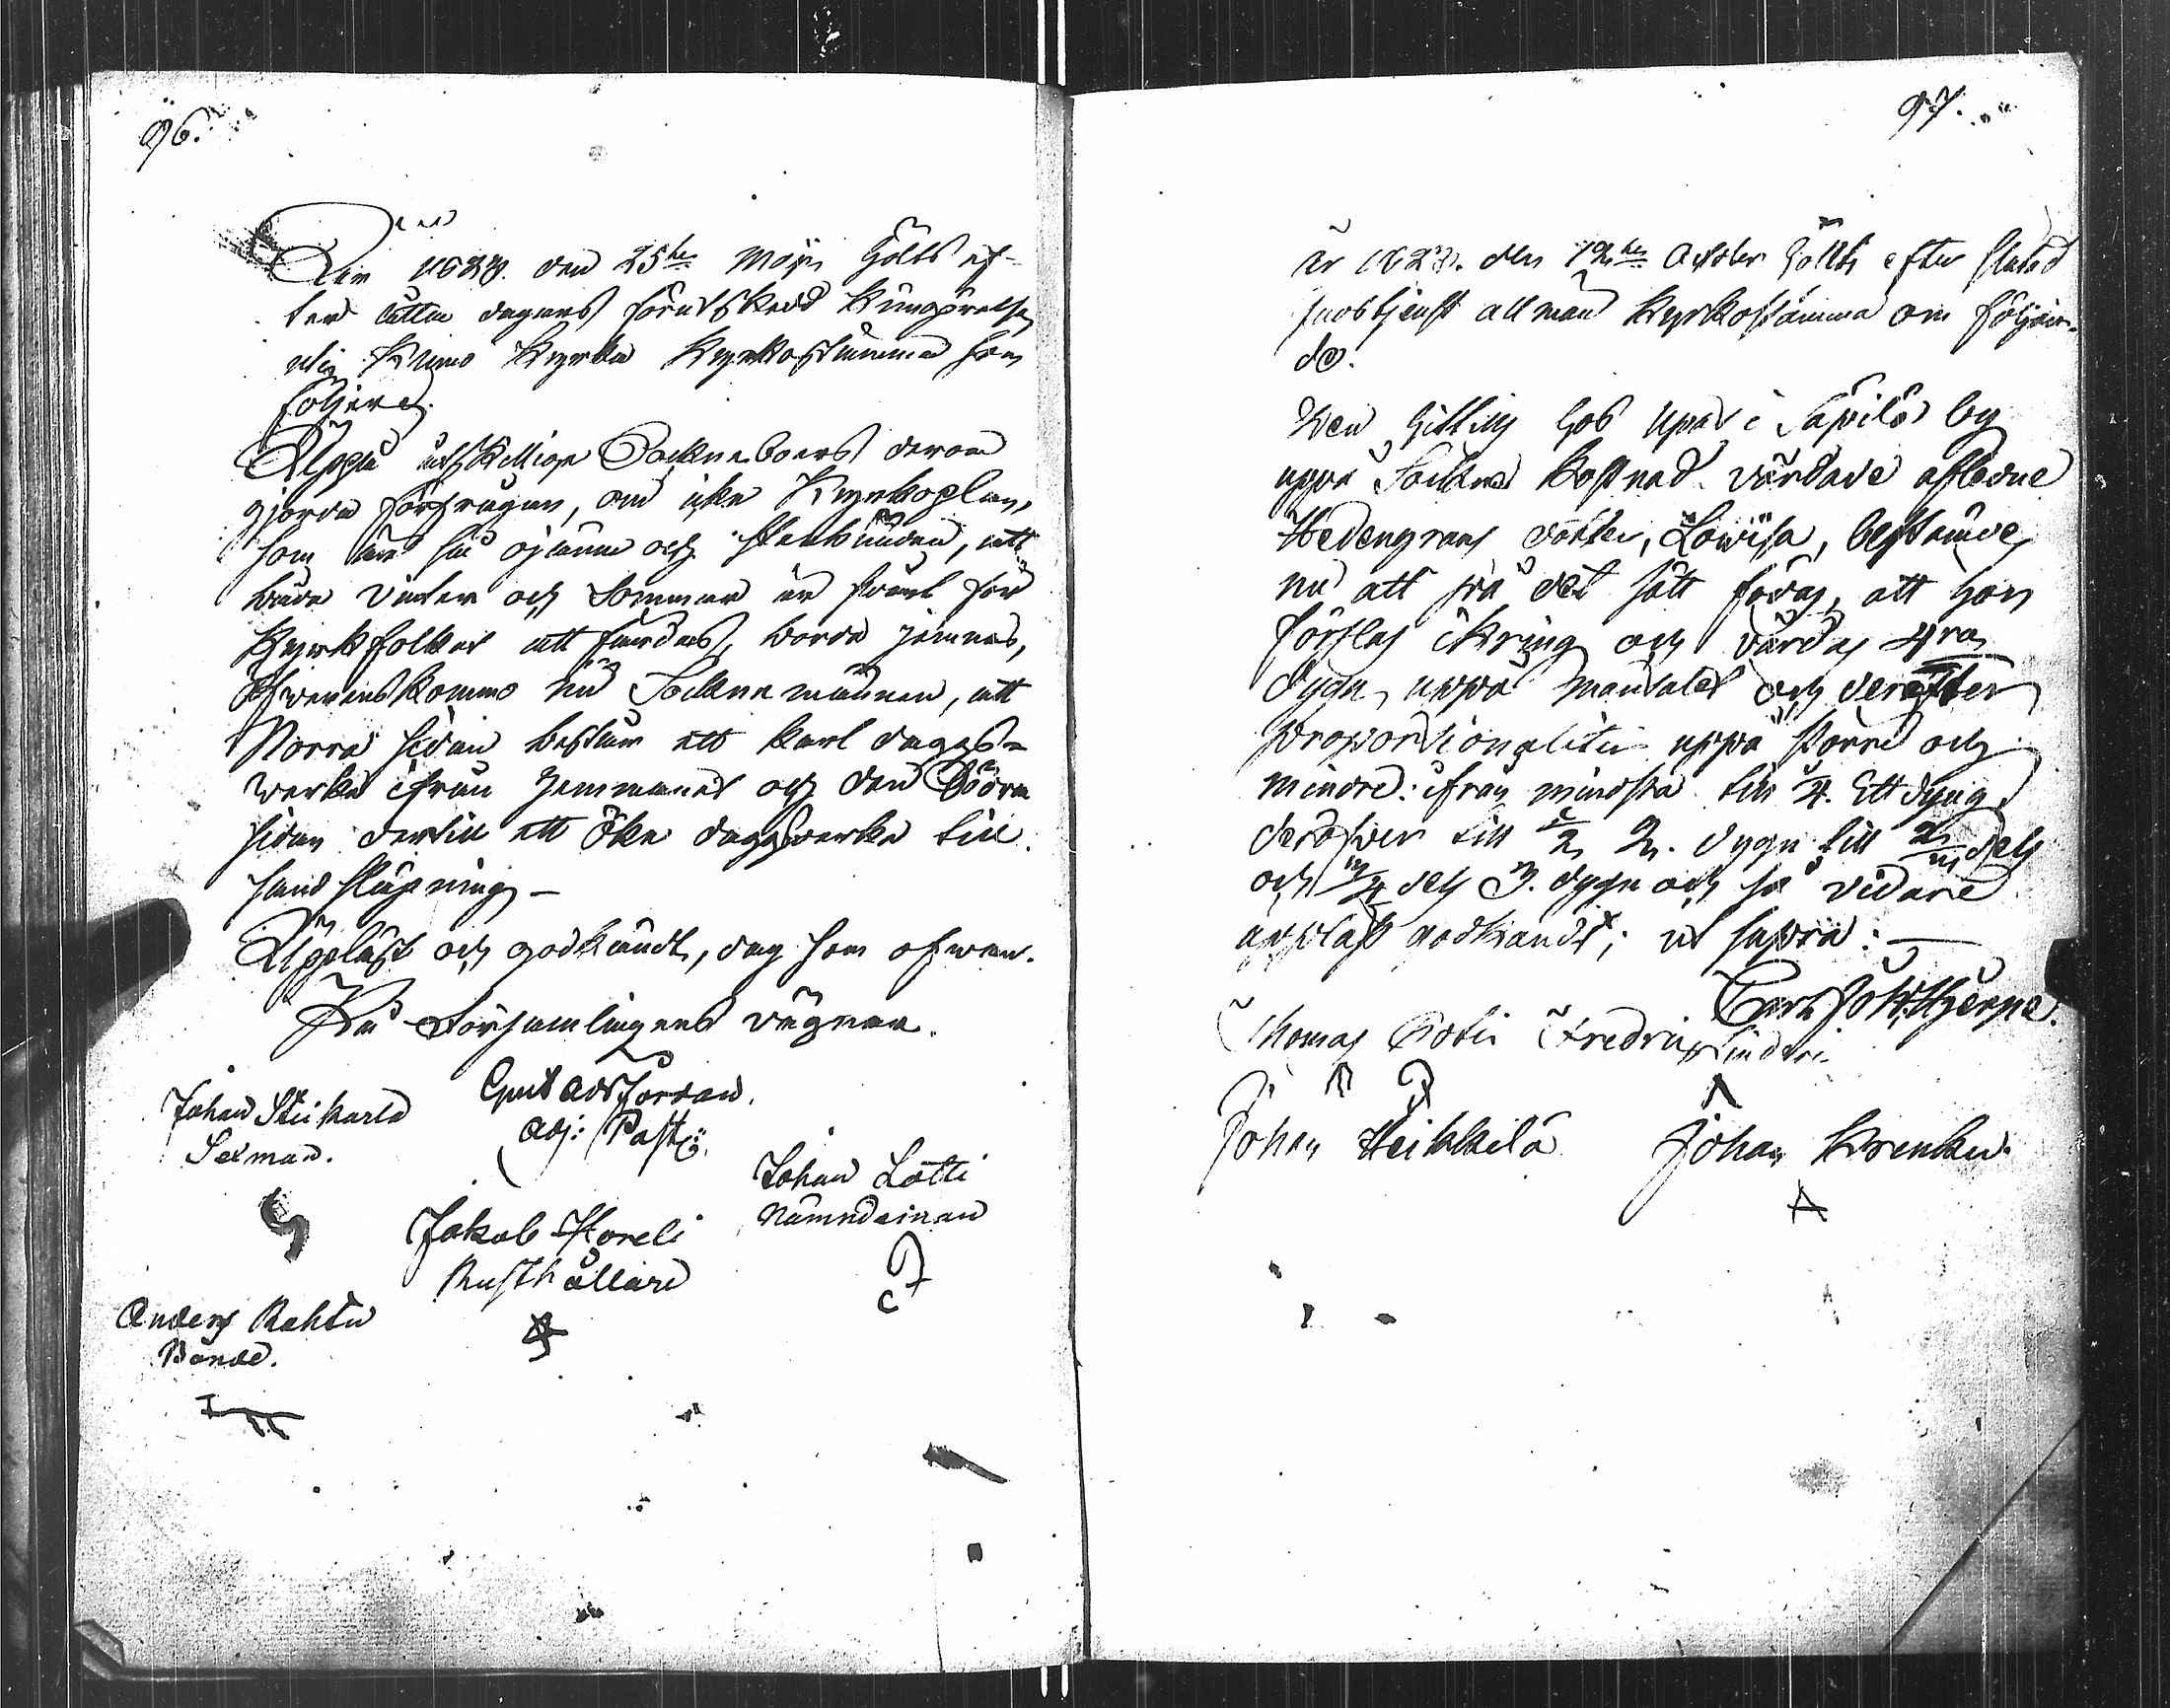 96.
den 25te Maji hölts ef-
ter åtta dagars förutskedd Kungörelse
uti Kumo Kyrka Kyrkostämma som
följer.
Uppå åtskillige Sockneboers derom
gjorda förfrågan, om icke Kyrkoplan,
som är så ojämn och stenbunden, att
både Vinter och Sommar är svårt för
Kyrkfolket att färdas, borde jämnas,
öfverenskommo nu Socknemännen, att
Norra sidan består ett karl dags-
werke ifrån hemmanet och den Södra
sidan dertill ett öke dagswerke till
sand släpning –
Uppläst och godkändt, dag som ofwan.
På Församlingens vägnar.
Gust Adr Forsman.
Adj: Past:
Johan Steikarla
Sexman.
Johan Lötti
Nämndeman
Jakob Horeli
Rusthållare
Anders Rahtu
Bonde.
97.
År 1823. den 12te October hölts efter slutad
Gudstjenst allmän Kyrkostämma om följan-
de.
Den hittills hos i Säpilä by
uppå Sockne kostnad vårdade afledne
Hedengrens dotter, Lowisa, bestämdes
nu att på det sätt födas, att hon
förslas ikring och vårdas
dygn uppå mantalet och derefter
proportionaliter uppå större och
mindre: ifrån mindsta till 1/4. Ett dygn
deröfver till 1/2 2. dygn till dels
och 3/4 dels 3. dygn och så vidare
uppläst godkändt; ut supra: —
Carl Joh: Hjerpe.
Thomas Fredrik
Johan Heikkilä Johan Krenku.